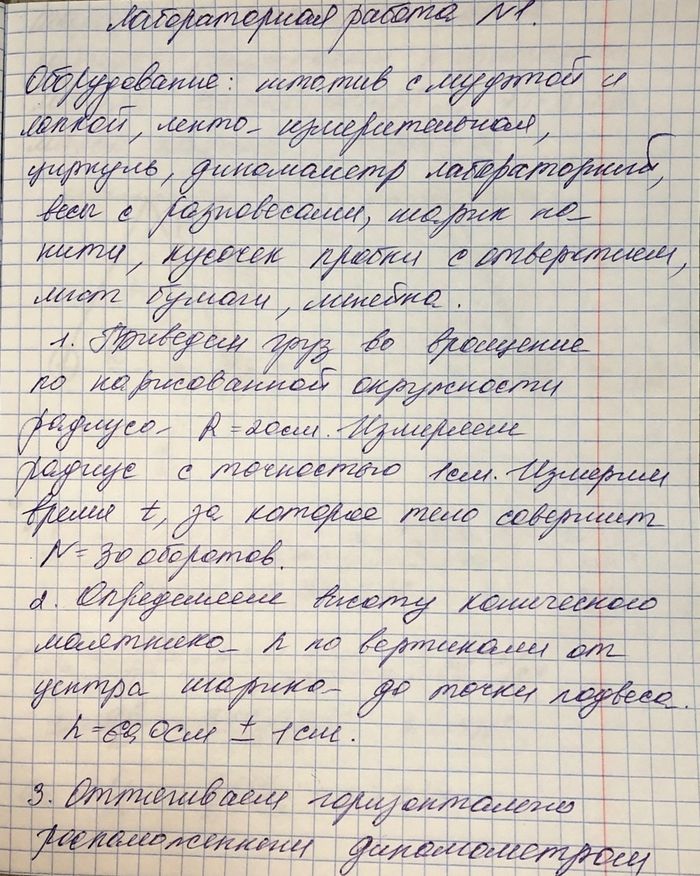 Лабораторная работа №1.
Оборудование: штатив с муфтой и
лапкой, лента измерительная,
циркуль, динамометр лабораторный,
весы с разновесами, шарик на
нити, кусочек пробки с отверстием,
лист бумаги, линейка.
1. Приведем груз во вращение
по нарисованной окружности
радиуса R=20см. Измеряем
радиус с точностью 1см. Измерим
время t, за которое тело совершит
N=30 оборотов.
2. Определяем высоту конического
маятника h по вертикали от
центра шарика до точки подвеса.
h=60,0см ± 1см.
3. Оттягиваем горизонтально
расположенным динамометром